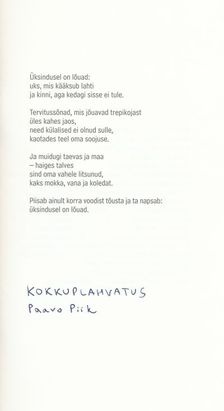 Üksindusel on lõuad:
uks, mis kääksub lahti
ja kinni, aga kedagi sisse ei tule.
Tervitussõnad, mis jõuavad trepikojast
üles kahes jaos,
need külalised ei olnud sulle,
kaotades teel oma soojuse.
Ja muidugi taevas ja maa
– haiges talves
sind oma vahele litsunud,
kaks mokka, vana ja koledat.
Piisab ainult korra voodist tõusta ja ta napsab:
üksindusel on lõuad.
KOKKUPLAHVATUS
Paavo Piik